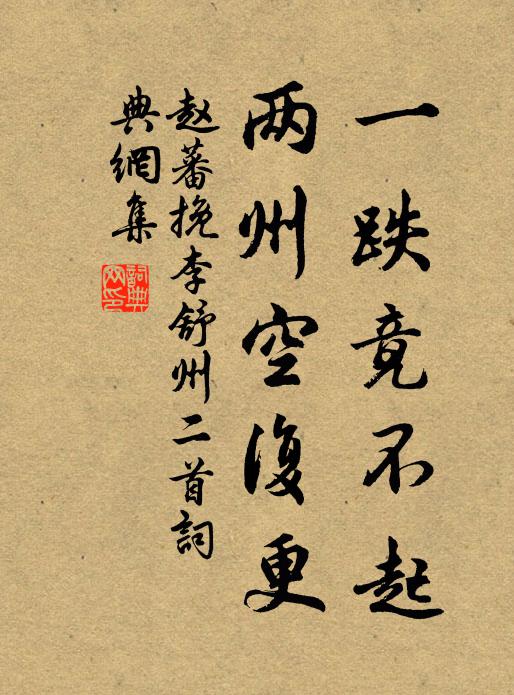 一跌竟不起
两州空復更
赵蕃挽李舒州二首詞
典網集
詞典网印